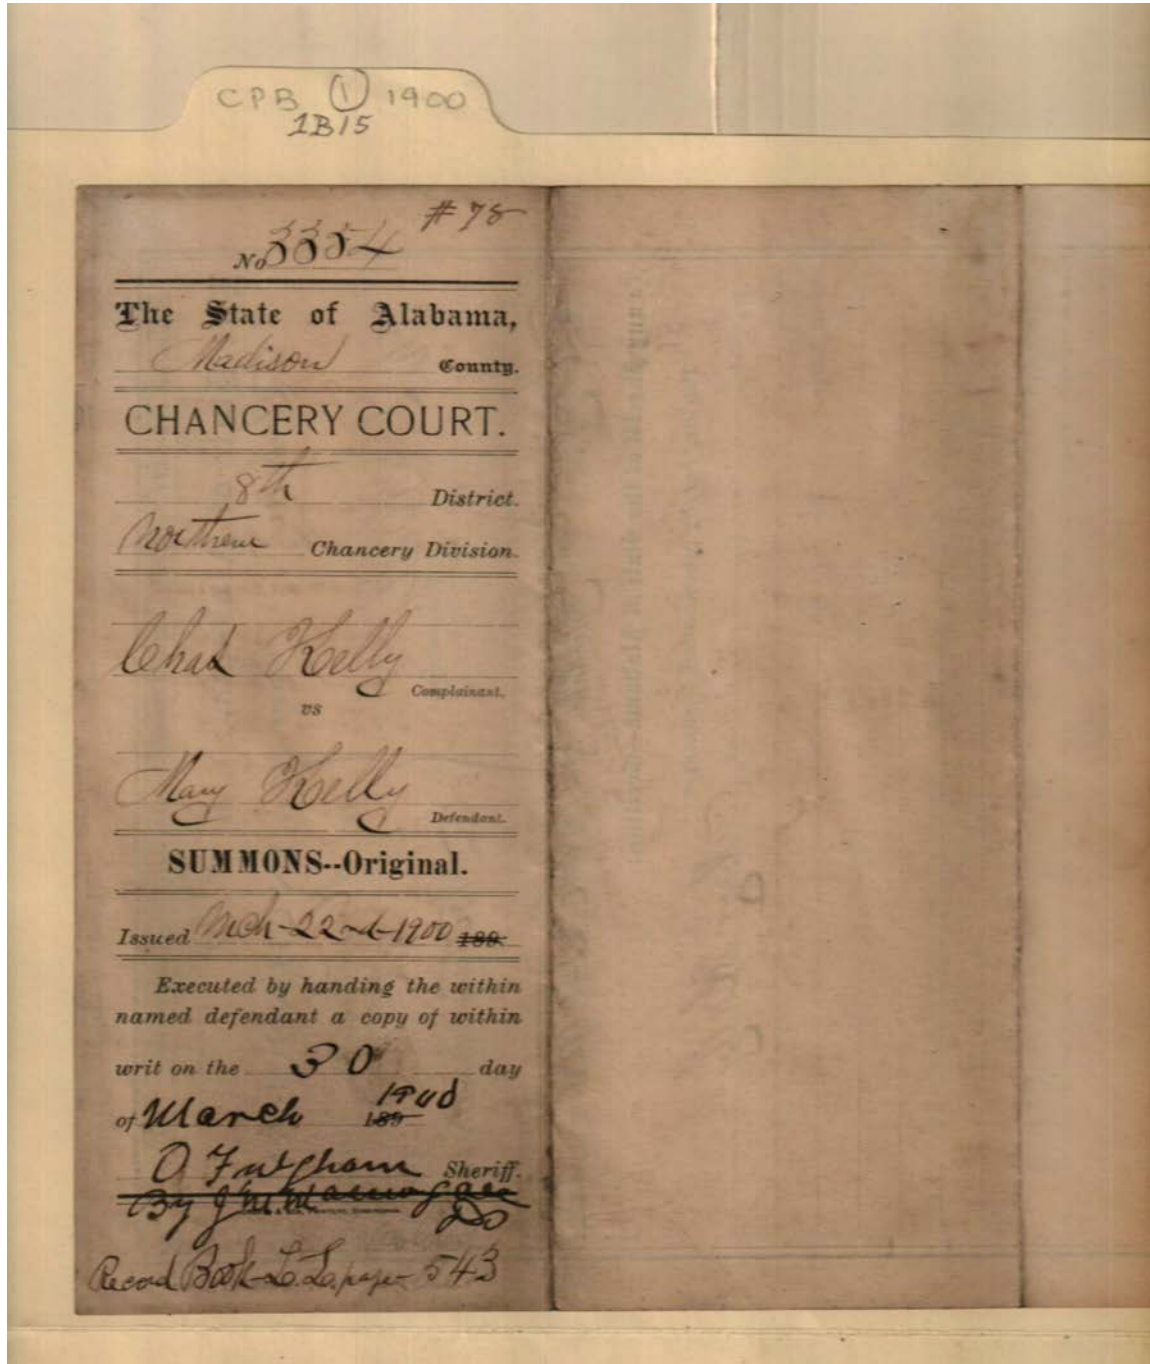 CPB 1 1900
1B15
# 78
No 3354
The State of Alabama,
Madison County.
CHANCERY COURT.
8th District.
Northern Chancery Division.
Chas Kelly
Complainant.
vs
Mary Kelly
Defendant.
SUMMONS--Original.
Issued Mch-22nd-1900 189
Executed by handing the within
named defendant a copy of within
writ on the 30 day
of March 1900
189
O Fulgham Sheriff.
By
DS
Record Book L.L. page 543